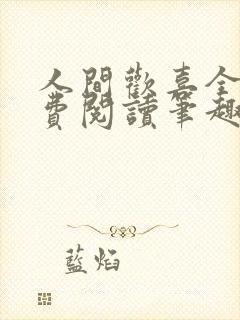 人間歡喜全
費閱讀筆趣
藍焰